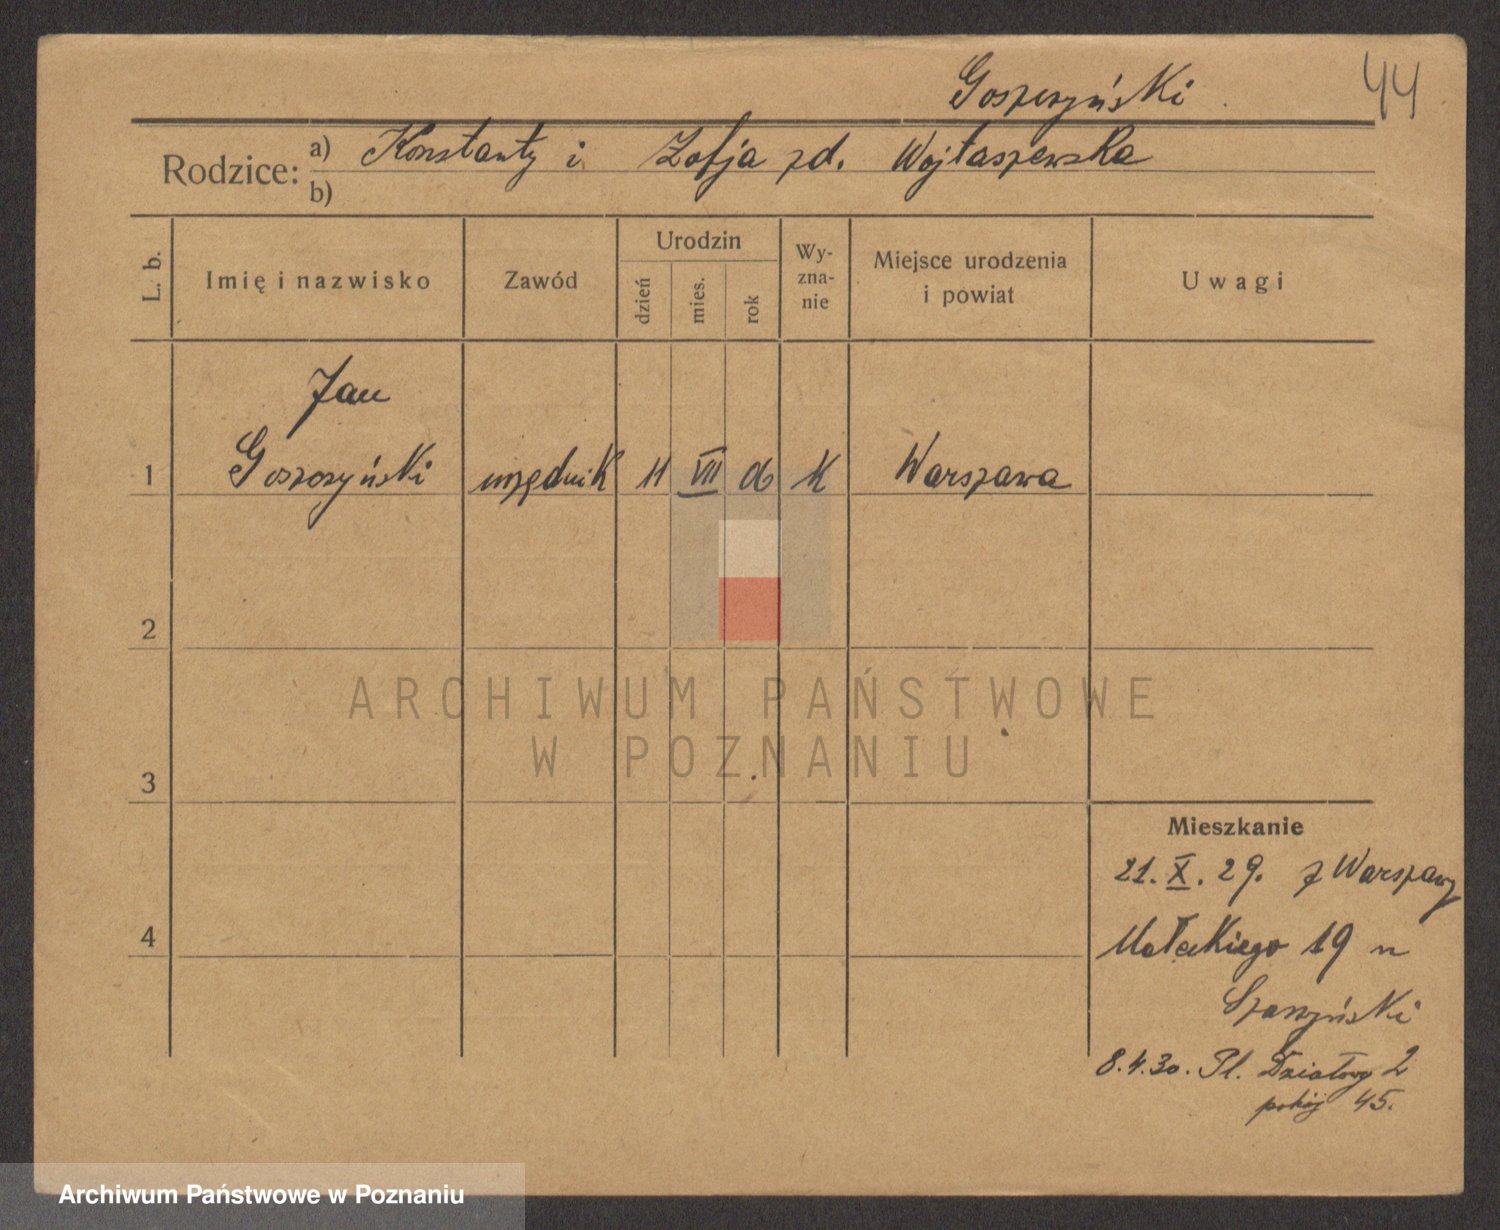 Goszczyński
44
Rodzice: a) Konstanty i Zofja zd. Wojtaszewska
b)
L. b. Imię i nazwisko Zawód Urodzin dzień mies. rok Wy-zna-nie Miejsce urodzenia i powiat Uwagi
Jan
1 Goszczyński urzędnik 11 VII 06 K Warszawa
2
ARCHIWUM PAŃSTWOWE
W POZNANIU
3
Mieszkanie
21. X. 29. z Warszawy
4 Małeckiego 19 u
8.4.30. Pl. Działowy 2
pokój 45.
Archiwum Państwowe w Poznaniu